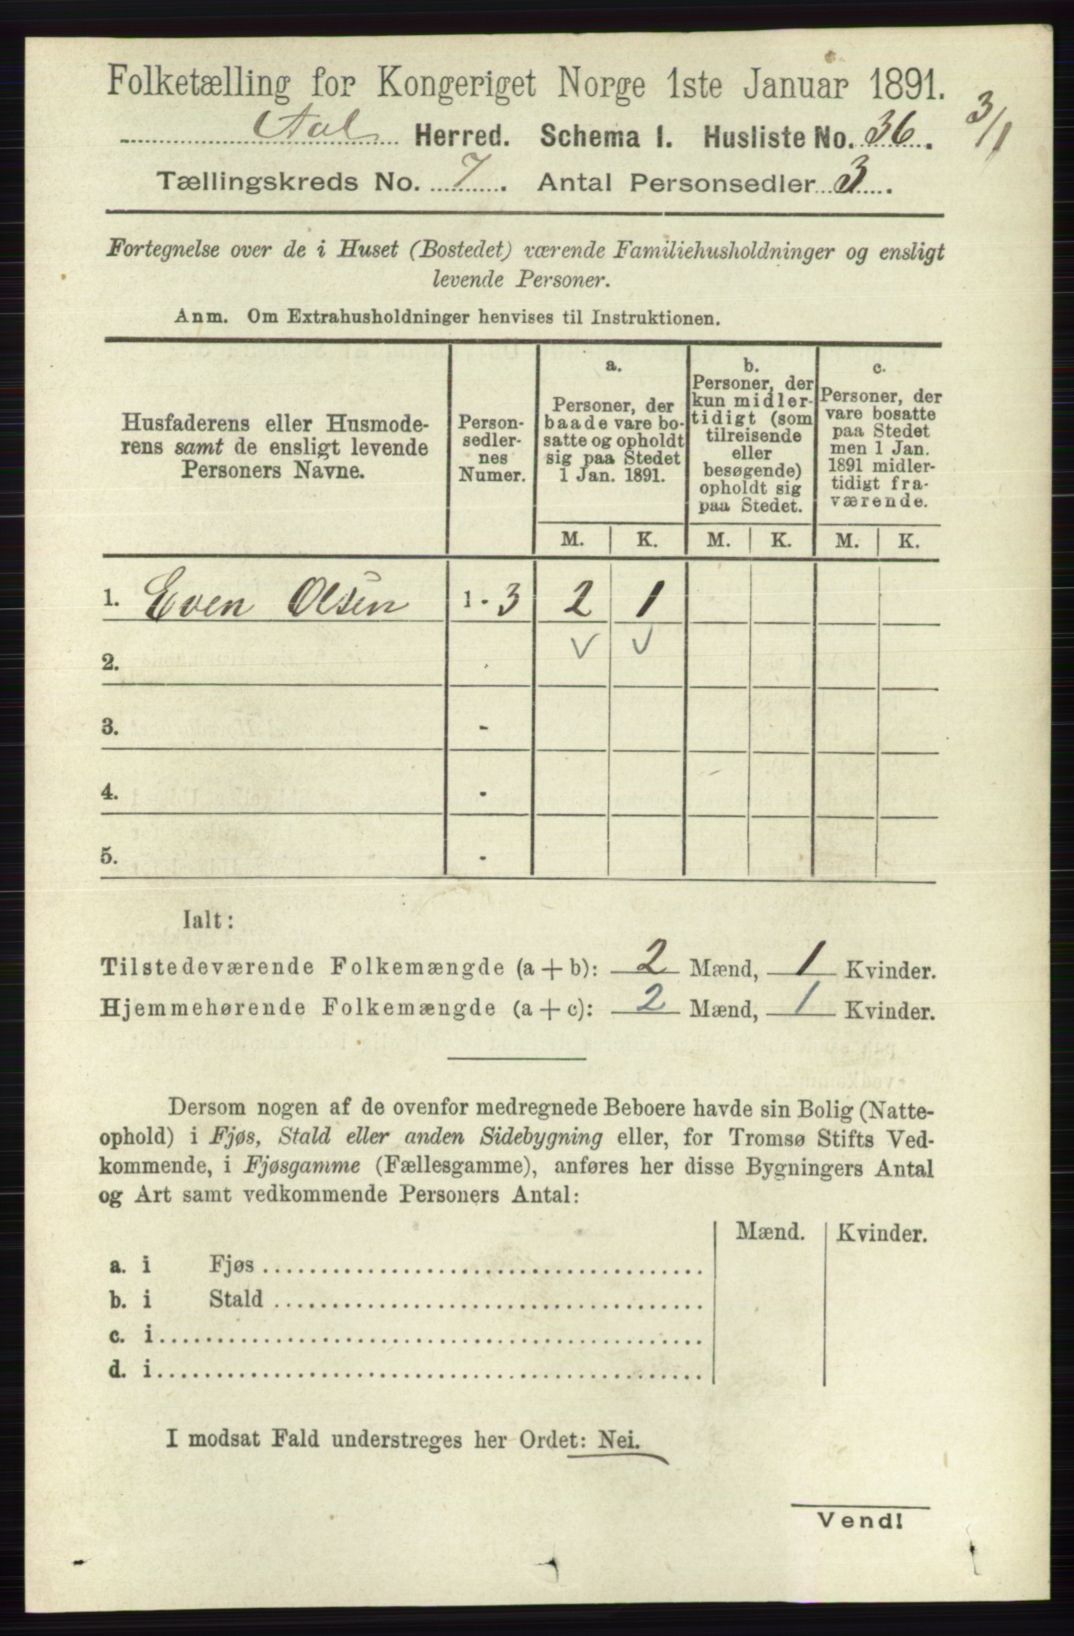 Folketælling for Kongeriget Norge 1ste Januar 1891.
Aal Herred. Schema I. Husliste No. 36.
3/1
Tællingskreds No. 7. Antal Personsedler 3.
Fortegnelse over de i Huset (Bostedet) værende Familiehusholdninger og ensligt
levende Personer.
Anm. Om Extrahusholdninger henvises til Instruktionen.
Husfaderens eller Husmode-
rens samt de ensligt levende
Personers Navne.
Person-
sedler-
nes
Numer.
a.
Personer, der
baade vare bo-
satte og opholdt
sig paa Stedet
1 Jan. 1891.
b.
Personer, der
kun midler-
tidigt (som
tilreisende
eller
besøgende)
opholdt sig
paa Stedet.
c.
Personer, der
vare bosatte
paa Stedet
men 1 Jan.
1891 midler-
tidigt fra-
værende.
M. K. M. K. M. K.
1. Even Olsen 1 - 3 2 1
2.
3. -
4. -
5. -
Ialt:
Tilstedeværende Folkemængde (a + b): 2 Mænd, 1 Kvinder.
Hjemmehørende Folkemængde (a + c): 2 Mænd, 1 Kvinder.
Dersom nogen af de ovenfor medregnede Beboere havde sin Bolig (Natte-
ophold) i Fjøs, Stald eller anden Sidebygning eller, for Tromsø Stifts Ved-
kommende, i Fjøsgamme (Fællesgamme), anføres her disse Bygningers Antal
og Art samt vedkommende Personers Antal:
Mænd. Kvinder.
a. i Fjøs
b. i Stald
c. i
d. i
I modsat Fald understreges her Ordet: Nei.
Vend!